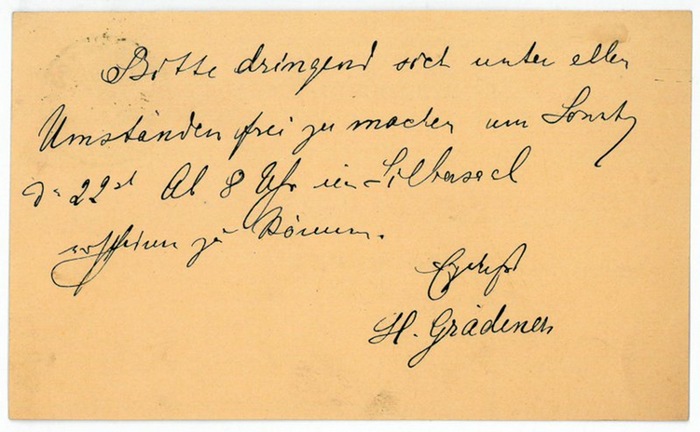 Bitte dringend sich unter allen
Umständen frei zu machen um Sonntg
d. 22st Ab 8 Uhr im Silbersaal
erscheinen zu können.
Ergebenst
H. Grädener